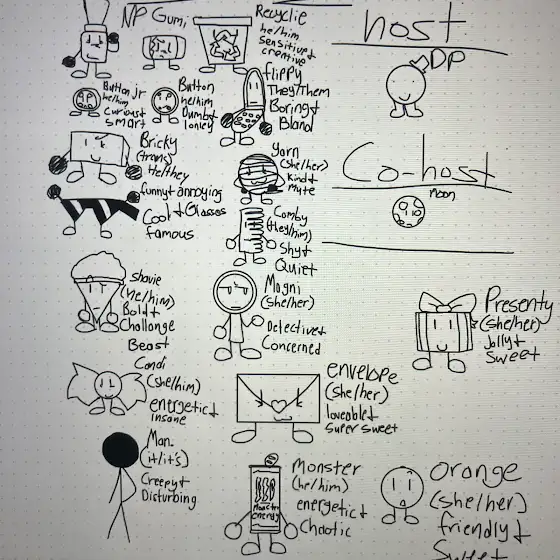 NP Gumi
Recyclie
he/him
sensitive +
creative
host
DP
Button jr
he/him
curious +
smart
Button
he/him
Dumb +
lonley
flippy
They/Them
Boring +
Bland
Bricky
(trans)
He/they
funny + annoying
Yarn
(she/her)
kind +
Myte
Co-host
Moon
Cool + Glasses
famous
Comby
(they/him)
Shy +
Quiet
Shavie
(he/him)
Bold +
Challange
Beast
Magni
(she/her)
Detective +
Concerned
Presenty
(she/her)
Jolly +
Sweet
Candi
(she/him)
energetic +
insane
envelope
(she/her)
loveable +
super sweet
Man.
(it/it's)
Creepy +
Disturbing
Monster
(he/him)
energetic +
Chaotic
Monster
energy
Orange
(she/her)
friendly +
Sweet